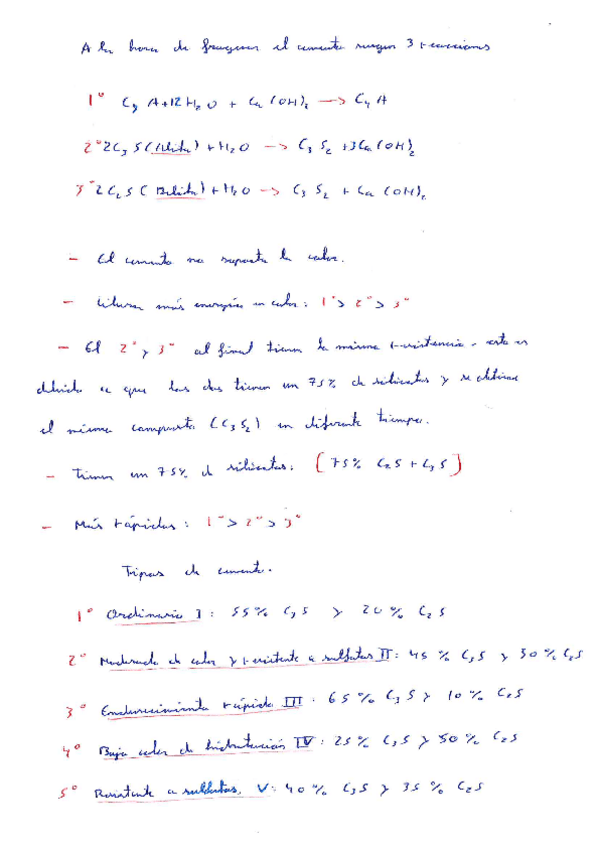 A la hora de fraguar el cemento surgen 3 reacciones
1º C3 A + 12 H2O + Ca (OH)2 → C4 A
2º 2C3 S (Alita) + H2O → C3 S2 + 3Ca (OH)2
3º 2 C2 S (Belita) + H2O → C3 S2 + Ca (OH)2
- El cemento no soporta la calor.
- Liberan más energía en calor: 1º > 2º > 3º
- El 2º y 3º al final tienen la misma resistencia, esto es
debido a que las dos tienen un 75% de silicatos y se obtiene
el mismo compuesto (C3S2) en diferente tiempo.
- Tienen un 75% de silicatos: (75% C2S + C3S)
- Más rápidos: 1º > 2º > 3º
Tipos de cemento.
1º Ordinario I: 55% C3S y 20% C2S
2º Moderado de calor y resistente a sulfatos II: 45% C3S y 30% C2S
3º Endurecimiento rápido III: 65% C3S y 10% C2S
4º Bajo calor de hidratación IV: 25% C3S y 50% C2S
5º Resistente a sulfatos. V: 40% C3S y 35% C2S